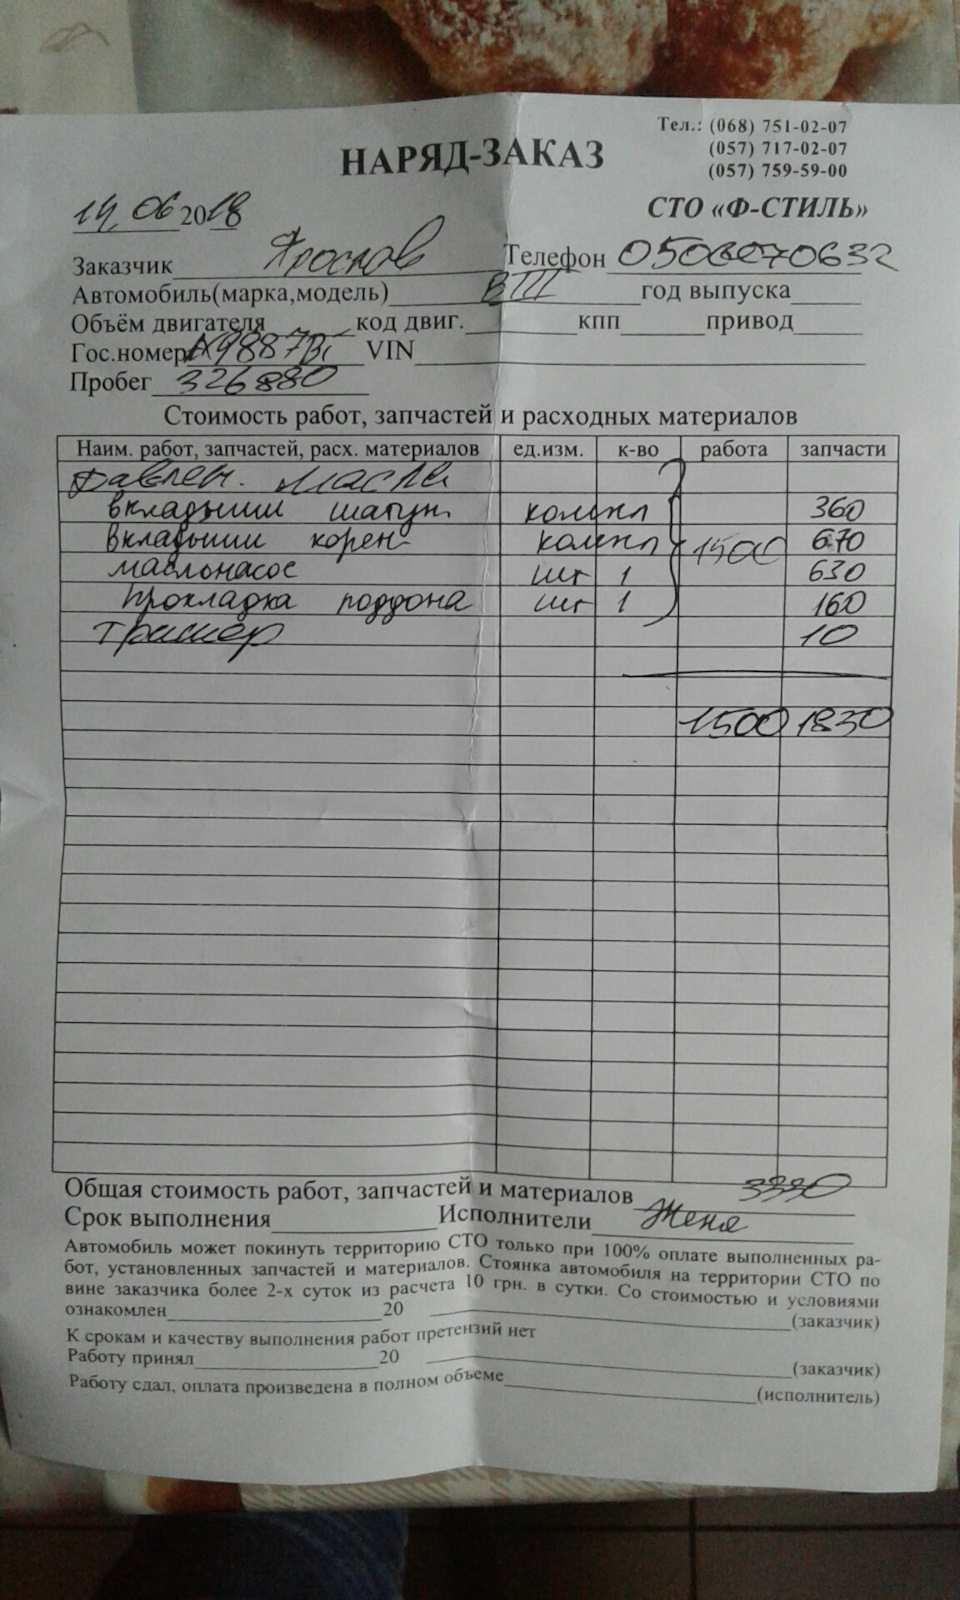 Тел.: (068) 751-02-07
(057) 717-02-07
(057) 759-59-00
НАРЯД-ЗАКАЗ
СТО «Ф-СТИЛЬ»
14.06 2018
Заказчик Телефон
Автомобиль(марка,модель) год выпуска
Объём двигателя код двиг. кпп привод
Гос.номер VIN
Пробег 326880
Стоимость работ, запчастей и расходных материалов
Наим. работ, запчастей, расх. материалов ед.изм. к-во работа запчасти
давлен. масла
вкладыши шатун. компл 360
вкладыши корен- компл 1500 670
маслонасос шт 1 630
прокладка поддона шт 1 160
10
1500 1830
Общая стоимость работ, запчастей и материалов 3330
Срок выполнения Исполнители Женя
Автомобиль может покинуть территорию СТО только при 100% оплате выполненных ра-
бот, установленных запчастей и материалов. Стоянка автомобиля на территории СТО по
вине заказчика более 2-х суток из расчета 10 грн. в сутки. Со стоимостью и условиями
ознакомлен 20 (заказчик)
К срокам и качеству выполнения работ претензий нет
Работу принял 20 (заказчик)
Работу сдал, оплата произведена в полном объеме (исполнитель)